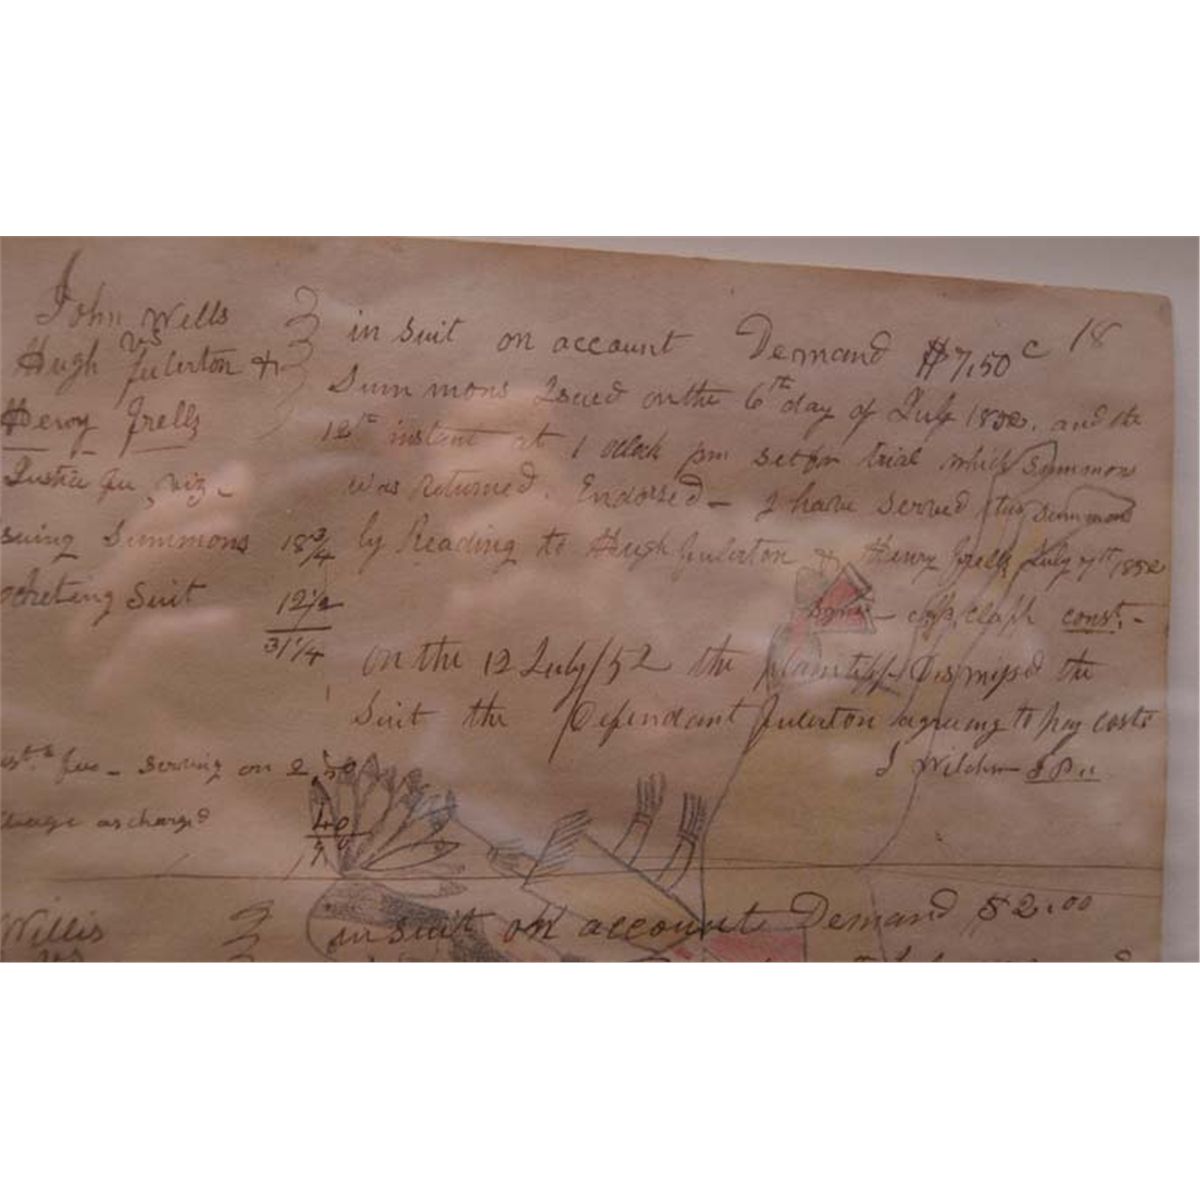 John Wells
vs
Hugh Fulerton &
Henry Frells
Justice fee, viz -
suing Summons 18 3/4
ocketing Suit 12 1/2
31 1/4
fee - serving on 2
as charged 40
in suit on account Demand $7,50 c 18
Summons Isued on the 6th day of July 1852. and the
12th instant at 1 oclock pm set for trial which Summons
was returned. Endorsed - I have served this summons
by Reading to Hugh Fulerton & Henry Frells July 7th 1852
const. -
on the 12 July/52 the plaintiff Dismissd the
Suit the Defendant Fulerton agreeing to pay costs
J P
Willis
vs
in suit on account Demand $2.00